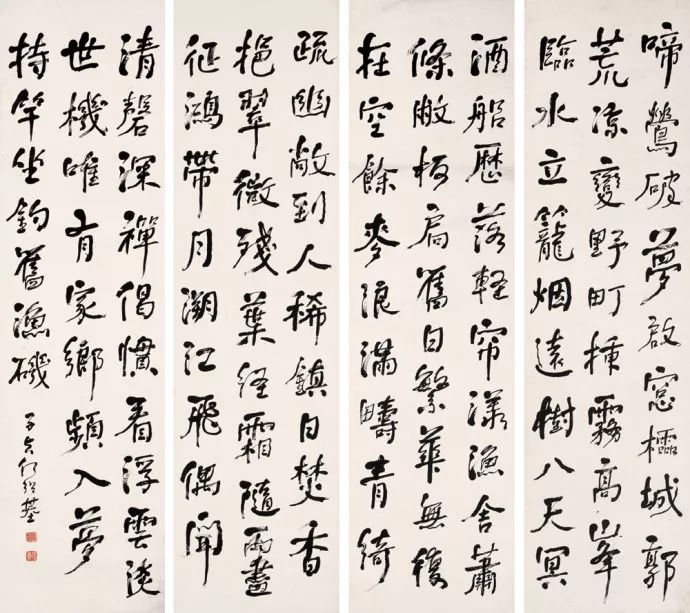 啼鶯破夢啟窗櫺城郭
荒涼變野町插霧高峰
臨水立籠烟遠樹入天冥
酒船歷落輕帘漾漁舍蕭
條敝板扃舊日繁華無復
在空餘麥浪滿疇青綺
疏幽敞到人稀鎮日焚香
挹翠微殘葉經霜隨雨盡
征鴻帶月溯江飛偶聞
清磬深禪偈慣看浮雲淡
世機唯有家鄉頻入夢
持竿坐釣舊漁磯
子貞何紹基